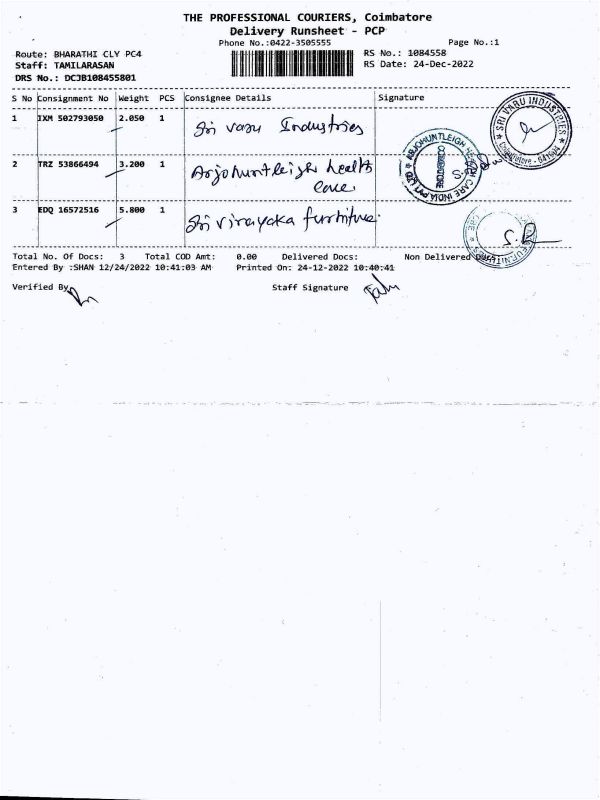 THE PROFESSIONAL COURIERS, Coimbatore
Delivery Runsheet - PCP
Phone No.:0422-3505555
Page No.:1
Route: BHARATHI CLY PC4
RS No.: 1084558
Staff: TAMILARASAN
RS Date: 24-Dec-2022
DRS No.: DCJB108455801
S No Consignment No Weight PCS Consignee Details Signature
1 IXM 502793050 2.050 1 Sri varu Industries
SRI VARU INDUSTRIES
Coimbatore - 641
2 TRZ 53866494 3.200 1 Arjohuntleigh health care
ARJOHUNTLEIGH HEALTH CARE INDIA PVT LTD
COIMBATORE
3 EDQ 16572516 5.800 1 Sri vinayaka furniture
FURNITURES
Total No. Of Docs: 3 Total COD Amt: 0.00 Delivered Docs: Non Delivered Docs:
Entered By :SHAN 12/24/2022 10:41:03 AM Printed On: 24-12-2022 10:40:41
Verified By
Staff Signature